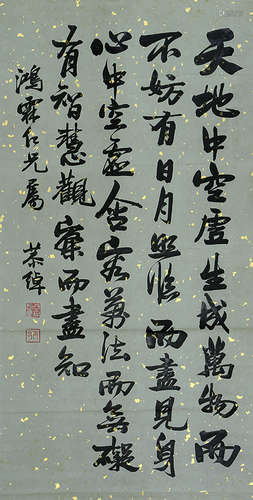 天地中空虛生成萬物而
不妨有日月照臨而盡見身
心中空虛含容萬法而無礙
有智慧觀察而盡知
鴻霖仁兄屬
茶陵